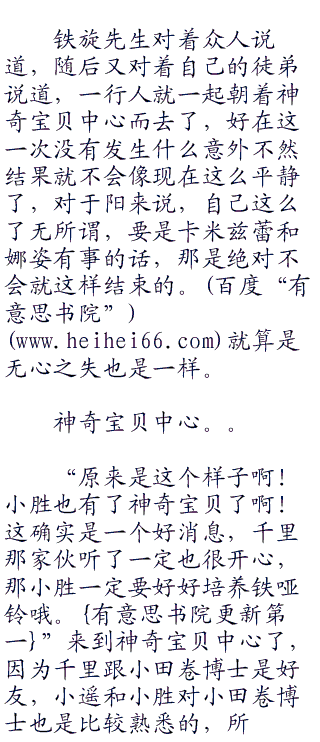 铁旋先生对着众人说
道，随后又对着自己的徒弟
说道，一行人就一起朝着神
奇宝贝中心而去了，好在这
一次没有发生什么意外不然
结果就不会像现在这么平静
了，对于阳来说，自己这么
了无所谓，要是卡米兹蕾和
娜姿有事的话，那是绝对不
会就这样结束的。(百度“有
意思书院”)
(www.heihei66.com)就算是
无心之失也是一样。
神奇宝贝中心。。
“原来是这个样子啊！
小胜也有了神奇宝贝了啊！
这确实是一个好消息，千里
那家伙听了一定也很开心，
那小胜一定要好好培养铁哑
铃哦。{有意思书院更新第
一}”来到神奇宝贝中心了，
因为千里跟小田卷博士是好
友，小遥和小胜对小田卷博
士也是比较熟悉的，所